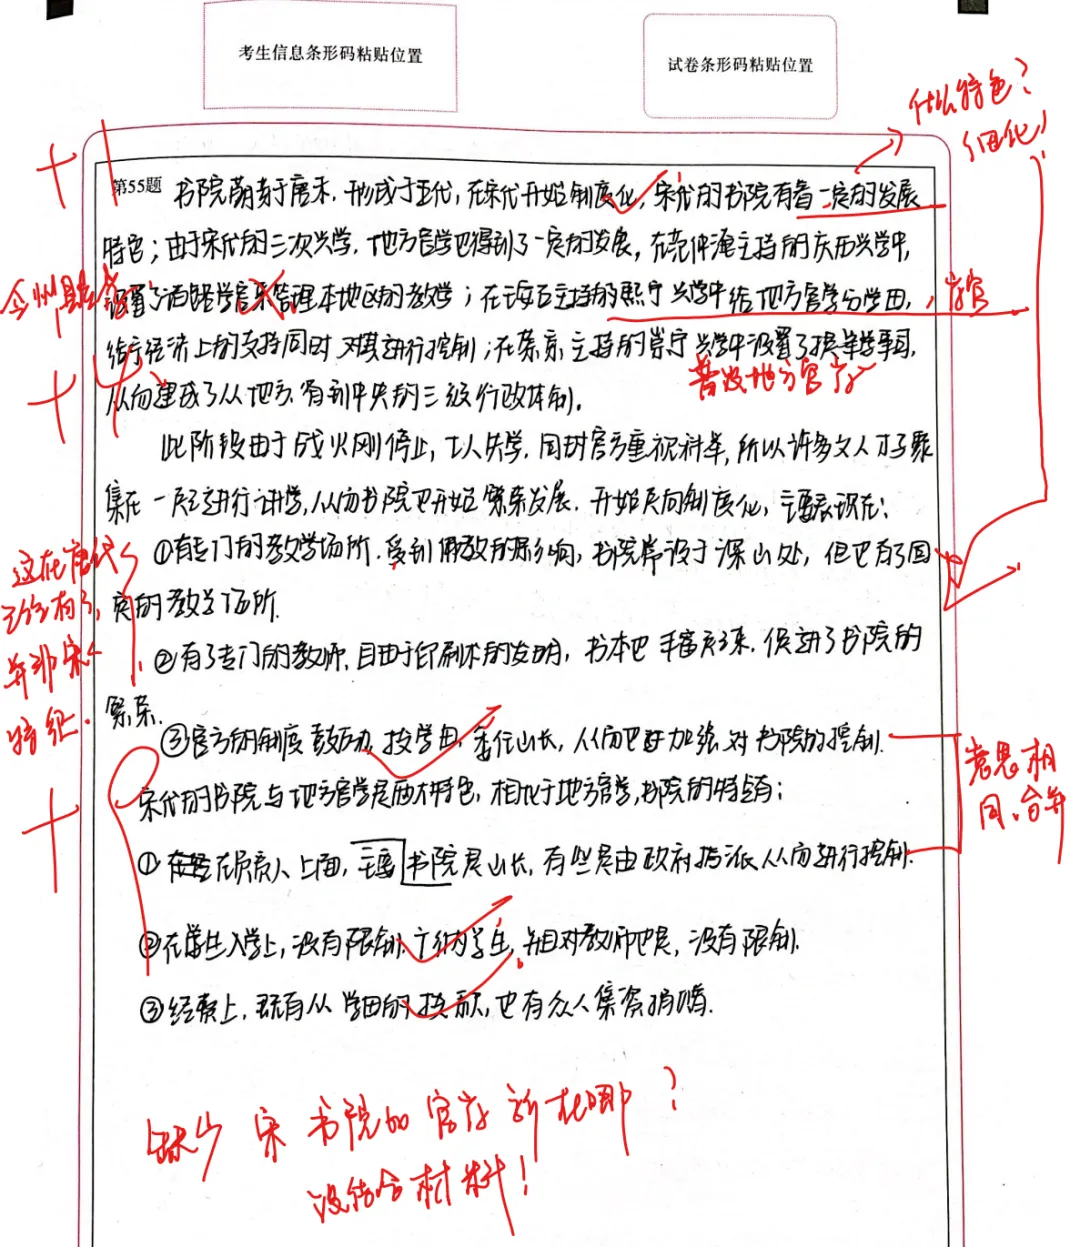 考生信息条形码粘贴位置
试卷条形码粘贴位置
什么特色？
（细化）
第55题 书院萌芽于唐末，形成于五代，在宋代开始制度化，宋代的书院有着一定的发展
特色；由于宋代的三次兴学，地方官学也得到了一定的发展，在范仲淹主持的庆历兴学中，
令州县
设置了 学官来管理本地区的教学；在王安石主持的熙宁兴学中给地方官学分学田，
给予经济上的支持同时对其进行控制；在蔡京主持的崇宁兴学中设置了提举学事司，
普及地方官学
从而建成了从地方省到中央的三级行政体制。
此阶段由于战火刚停止，士人失学，同时官方重视科举，所以许多文人才子聚
集在一起进行讲学，从而书院也开始繁荣发展，开始走向制度化，主要表现在：
①有专门的教学场所，受到佛教的影响，书院常设于深山处，但也有了固
定的教学场所。
这在唐代
已经有了，
并非宋代
特征。
②有了专门的教师，且由于印刷术的发明，书本也丰富起来，促进了书院的
繁荣。
③官方的制度鼓励，拨学田，委任山长，从而也加强对书院的控制。
意思相
同，合并
宋代的书院与地方官学是两种特色，相比于地方官学，书院的特点有：
①在负责人上面，主要书院是山长，有些是由政府指派从而进行控制。
②在学生入学上，没有限制，广纳学生，并且对教师也是，没有限制。
③经费上，既有从学田的拨款，也有众人集资捐赠。
缺少宋书院加官学新在哪？
没结合材料！